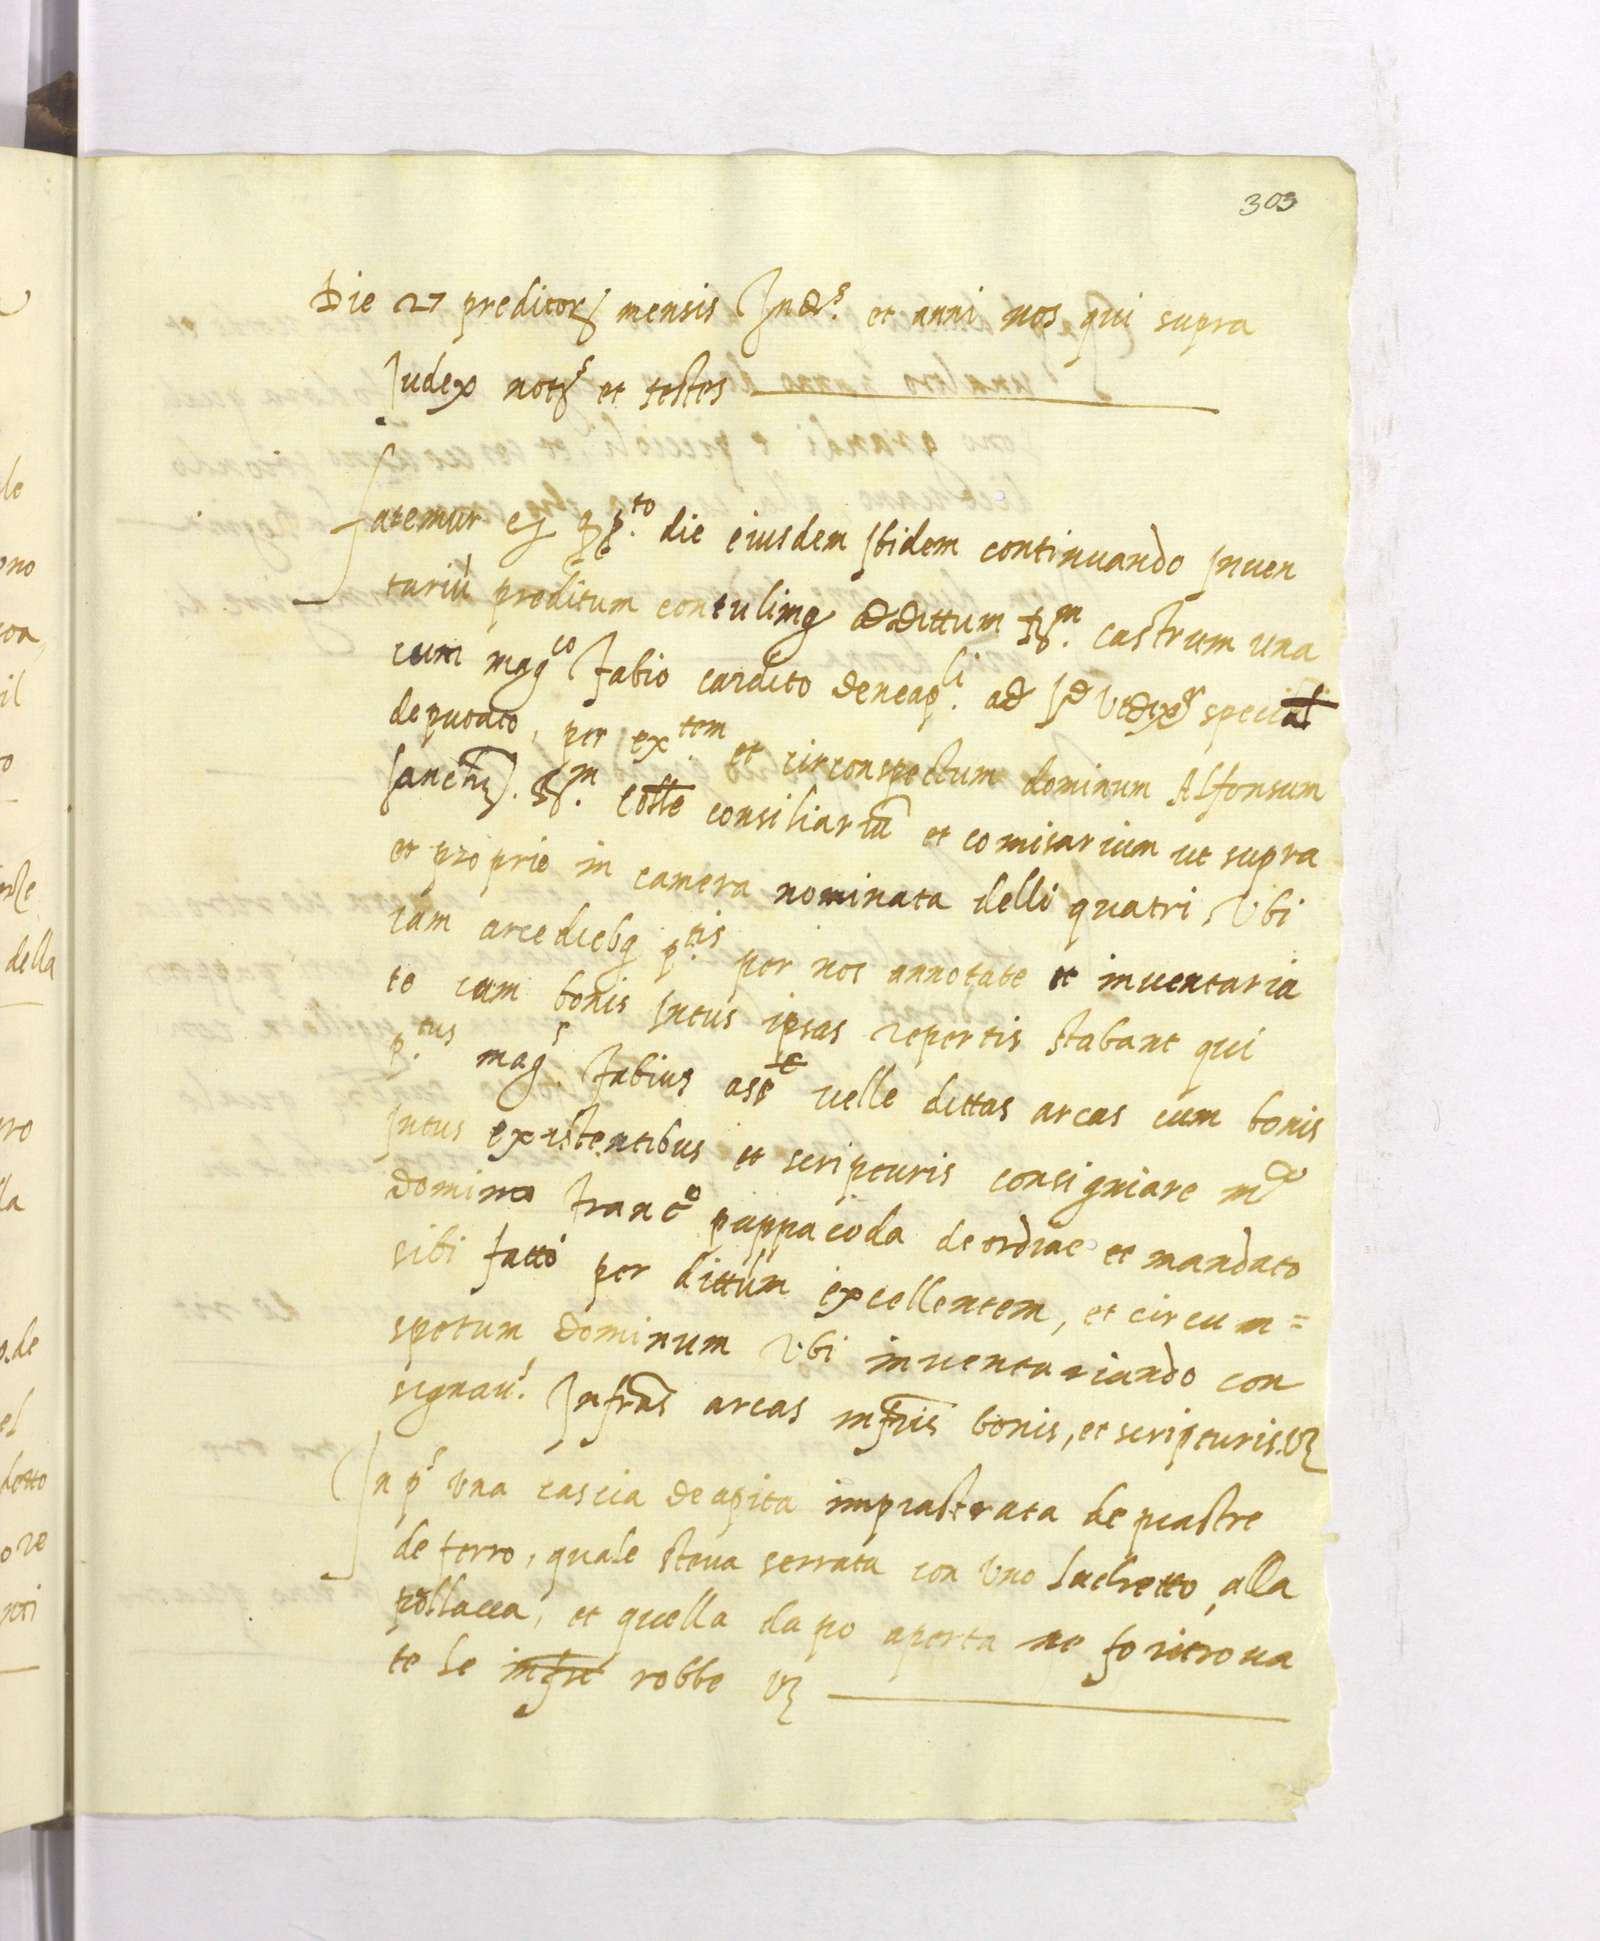 303
Die 27 preditor mensis Ind.s et anni nos qui supra
Judex not.s et testes
fatemur die eiusdem Ibidem continuando Inuen
tariù preditum contulimq ad dittum castrum una
cum mag.co fabio cardito de neap.li ad Id special
deputato, per ex.tem et circonspectum dominum Alfonsum
Sancez. R.m colle consiliariu et comisarium ut supra
et proprie in camera nominata delli quatri, Vbi
iam arce diebq p.tis per nos annotate et inuentaria
te cum bonis Intus ipsas repertis stabant qui
p.tus mag.s fabius asse uelle dittas arcas cum bonis
Intus existentibus et scripturis consigniare m.co
domino franc.o pappacoda de ordine et mandato
sibi fatto per dittum excellentem, et circum=
spetum dominum Vbi inuentariando con
signau.t Infras arcas infris bonis, et scripturis. Vz
In p.s Vna cascia de apita impiastrata de piastre
de ferro, quale steua serrata con Vno luchetto, alla
pollacca, et quella da po aperta ne fo ritroua
te le infre robbe Vz